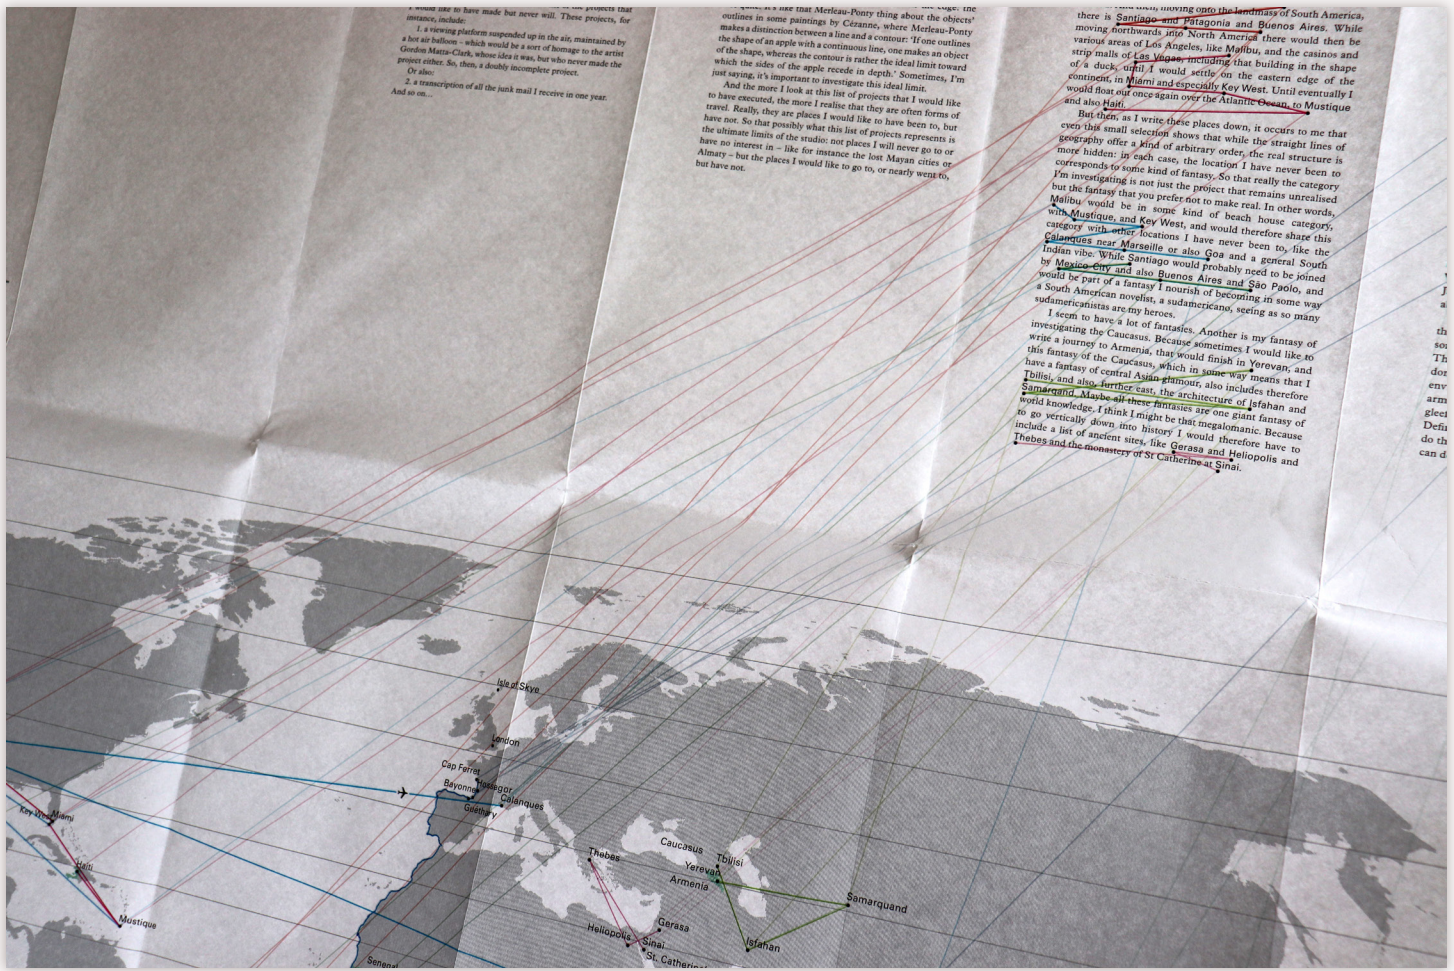 would like to have made but never will. These projects, for
instance, include:
1. a viewing platform suspended up in the air, maintained by
a hot air balloon – which would be a sort of homage to the artist
Gordon Matta-Clark, whose idea it was, but who never made the
project either. So, then, a doubly incomplete project.
Or also:
2. a transcription of all the junk mail I receive in one year.
And so on...
it's like that Merleau-Ponty thing about the objects'
outlines in some paintings by Cézanne, where Merleau-Ponty
makes a distinction between a line and a contour: 'If one outlines
the shape of an apple with a continuous line, one makes an object
of the shape, whereas the contour is rather the ideal limit toward
which the sides of the apple recede in depth.' Sometimes, I'm
just saying, it's important to investigate this ideal limit.
And the more I look at this list of projects that I would like
to have executed, the more I realise that they are often forms of
travel. Really, they are places I would like to have been to, but
have not. So that possibly what this list of projects represents is
the ultimate limits of the studio: not places I will never go to or
have no interest in – like for instance the lost Mayan cities or
Almaty – but the places I would like to go to, or nearly went to,
but have not.
then, moving onto the landmass of South America,
there is Santiago and Patagonia and Buenos Aires. While
moving northwards into North America there would then be
various areas of Los Angeles, like Malibu, and the casinos and
strip malls of Las Vegas, including that building in the shape
of a duck, until I would settle on the eastern edge of the
continent, in Miami and especially Key West. Until eventually I
would float out once again over the Atlantic Ocean, to Mustique
and also Haiti.
But then, as I write these places down, it occurs to me that
even this small selection shows that while the straight lines of
geography offer a kind of arbitrary order, the real structure is
more hidden: in each case, the location I have never been to
corresponds to some kind of fantasy. So that really the category
I'm investigating is not just the project that remains unrealised
but the fantasy that you prefer not to make real. In other words,
Malibu would be in some kind of beach house category,
with Mustique, and Key West, and would therefore share this
category with other locations I have never been to, like the
Calanques near Marseille or also Goa and a general South
Indian vibe. While Santiago would probably need to be joined
by Mexico City and also Buenos Aires and São Paolo, and
would be part of a fantasy I nourish of becoming in some way
a South American novelist, a sudamericano, seeing as so many
sudamericanistas are my heroes.
I seem to have a lot of fantasies. Another is my fantasy of
investigating the Caucasus. Because sometimes I would like to
write a journey to Armenia, that would finish in Yerevan, and
this fantasy of the Caucasus, which in some way means that I
have a fantasy of central Asian glamour, also includes therefore
Tbilisi, and also, further east, the architecture of Isfahan and
Samarqand. Maybe all these fantasies are one giant fantasy of
world knowledge, I think I might be that megalomanic. Because
to go vertically down into history I would therefore have to
include a list of ancient sites, like Gerasa and Heliopolis and
Thebes and the monastery of St Catherine at Sinai.
th
sou
Th
dor
env
arm
gleer
Defi
do th
can d
Isle of Skye
London
Cap Ferret
Hossegor
Bayonne
Calanques
Guéthary
Key West
Miami
Haiti
Mustique
Caucasus
Tbilisi
Yerevan
Armenia
Thebes
Samarquand
Gerasa
Heliopolis
Sinai
Isfahan
St. Catherine
Senegal